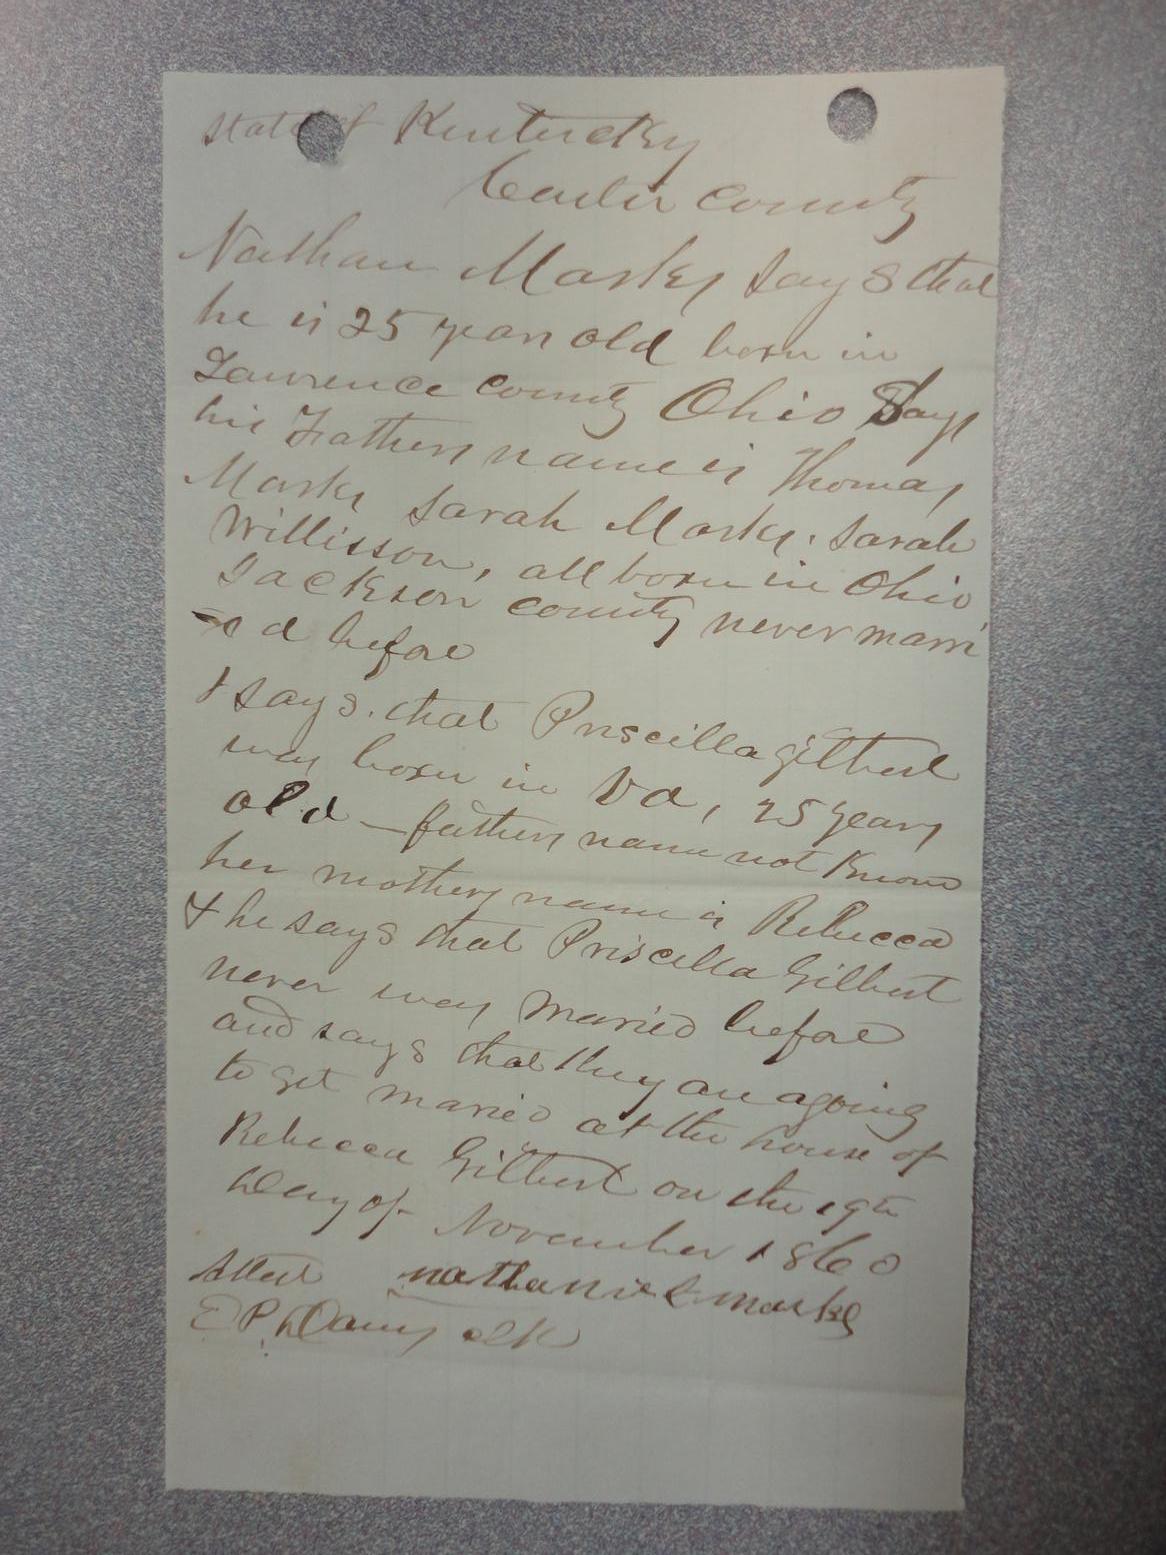 State of Kentucky
Carter County
Nathan Marks says that
he is 25 years old born in
Lawrence county Ohio Says
his Fathers name is Thomas
Marks Sarah Marks. Sarah
Willisson, all born in Ohio
Jackson county never marri
ed before
& says. that Priscilla Gilbert
was born in Va, 25 years
old — fathers name not Known
her mothers name is Rebecca
& he says that Priscilla Gilbert
never was Maried before
and says that they are agoing
to get maried at the house of
Rebecca Gilbert on the 19th
Day of November 1860
Attest nathaniel marks
E P. Davis clk